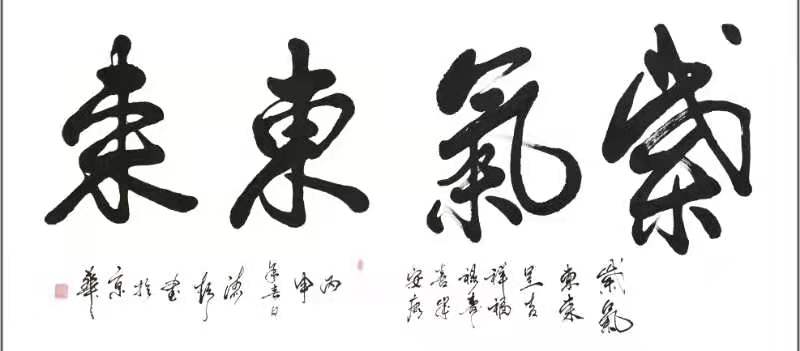 紫氣東來
紫氣
東來
呈吉
祥福
祿壽
喜平
安康
丙
申
年春日
書
於
京
華